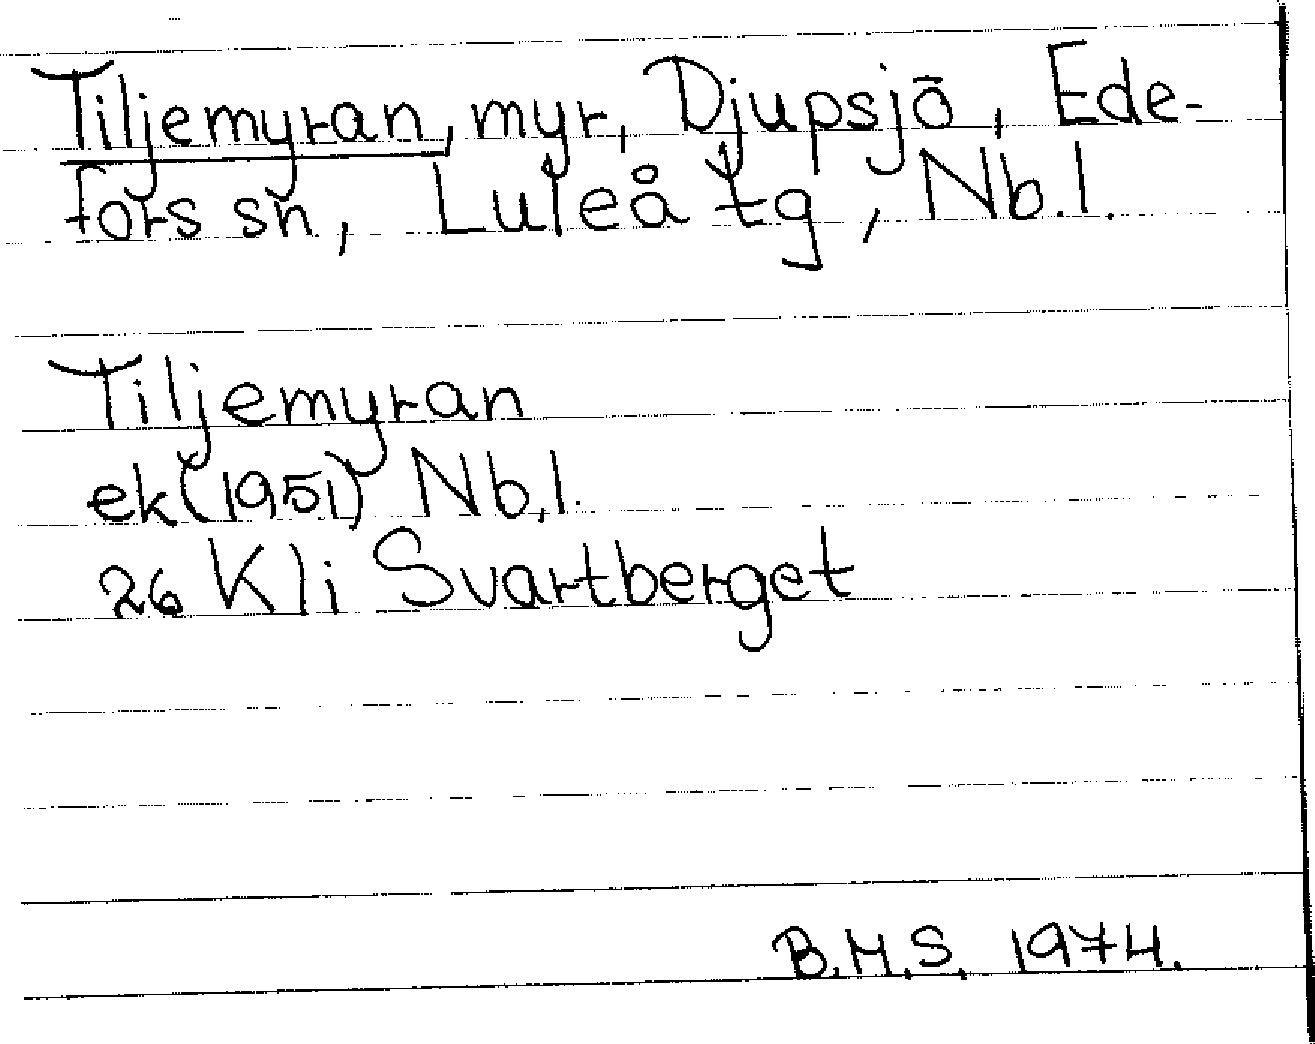 Tiljemyran, myr, Djupsjö, Ede-
fors sn, Luleå tg, Nb.l.
Tiljemyran
ek(1951) Nb.l.
26 Kli Svartberget
B.M.S. 1974.